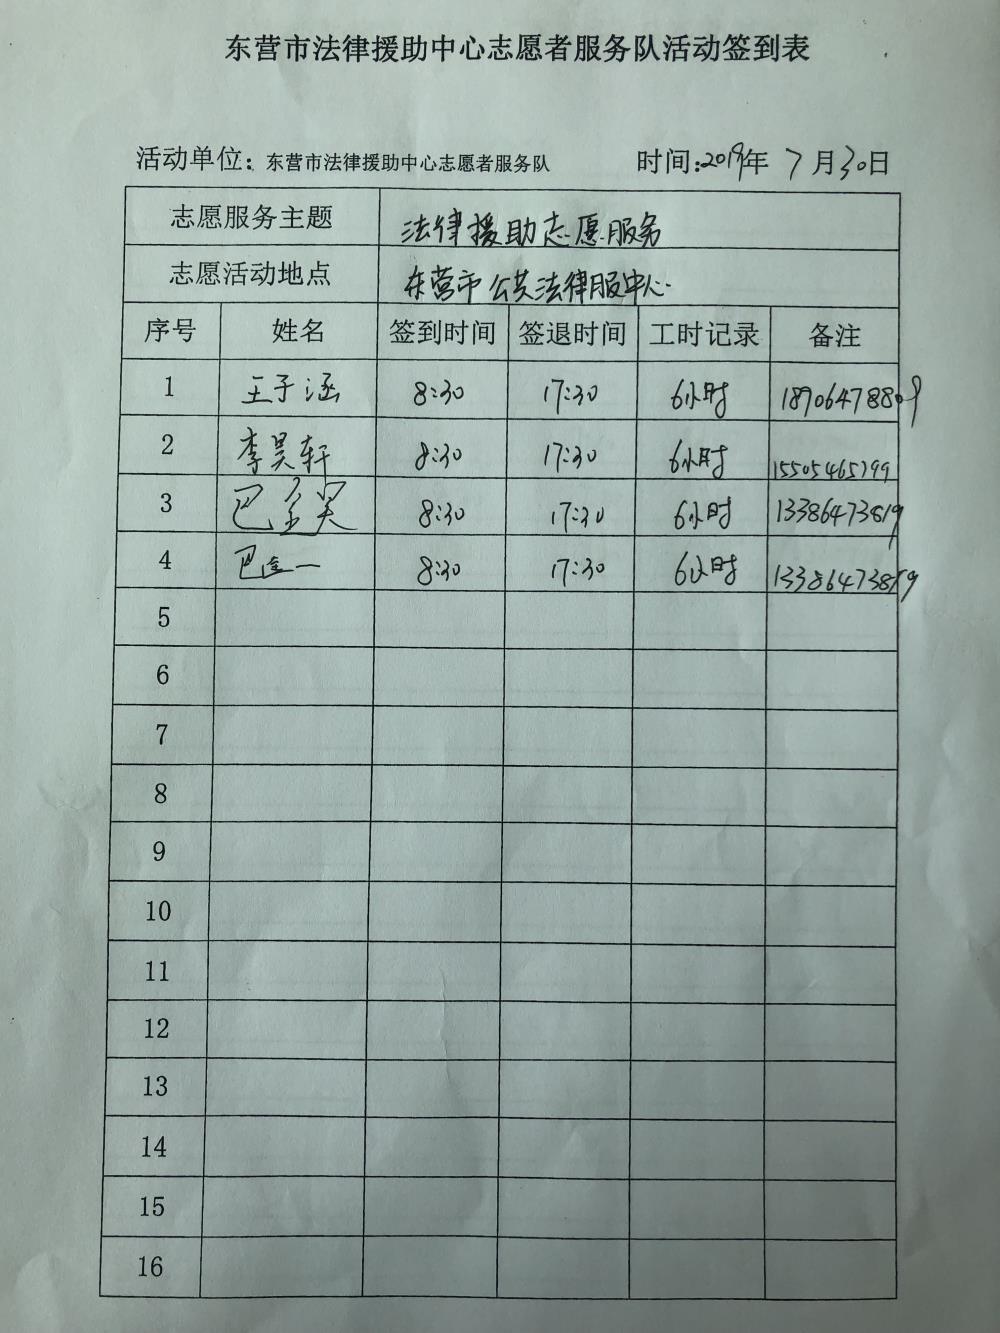 东营市法律援助中心志愿者服务队活动签到表
活动单位：东营市法律援助中心志愿者服务队 时间：2019年 7 月30日
志愿服务主题 法律援助志愿服务
志愿活动地点 东营市公共法律服中心
序号 姓名 签到时间 签退时间 工时记录 备注
1 王子涵 8:30 17:30 6小时 18906478809
2 李昊轩 8:30 17:30 6小时
3 8:30 17:30 6小时 13386473819
4 8:30 17:30 6小时 13386473819
5
6
7
8
9
10
11
12
13
14
15
16